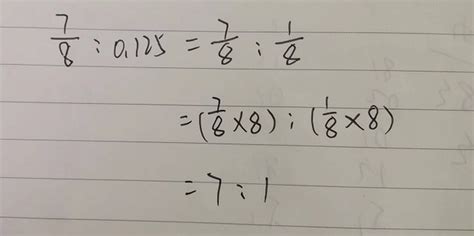 7/8 : 0.125 = 7/8 : 1/8
= (7/8 × 8) : (1/8 × 8)
= 7 : 1